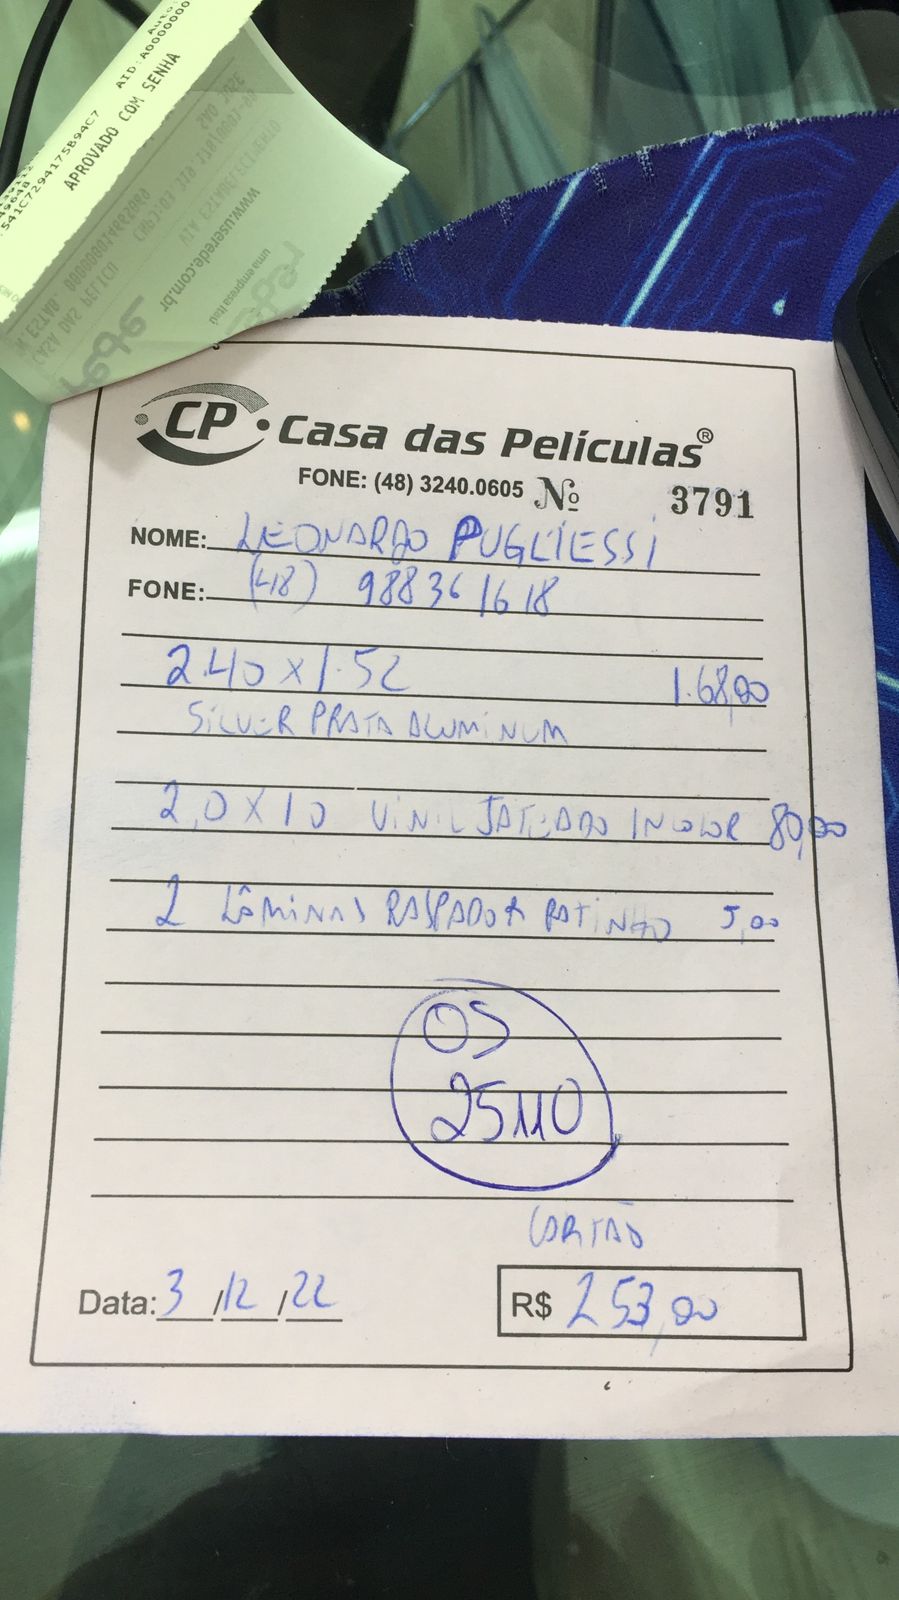 APROVADO COM SENHA
www.userede.com.br
uma empresa Itaú
rede
CP Casa das Películas®
FONE: (48) 3240.0605 Nº 3791
NOME: LEONARDO PUGLIESSI
FONE: (48) 988361618
2.40 x 1.52 1.68,00
SILVER PRATA ALUMINUM
2,0 x 10 VINIL JATEADO INCOLOR 80,00
2 LÂMINAS RASPADOR PATINHO 5,00
OS
25110
CARTÃO
Data: 3/12/22 R$ 253,00